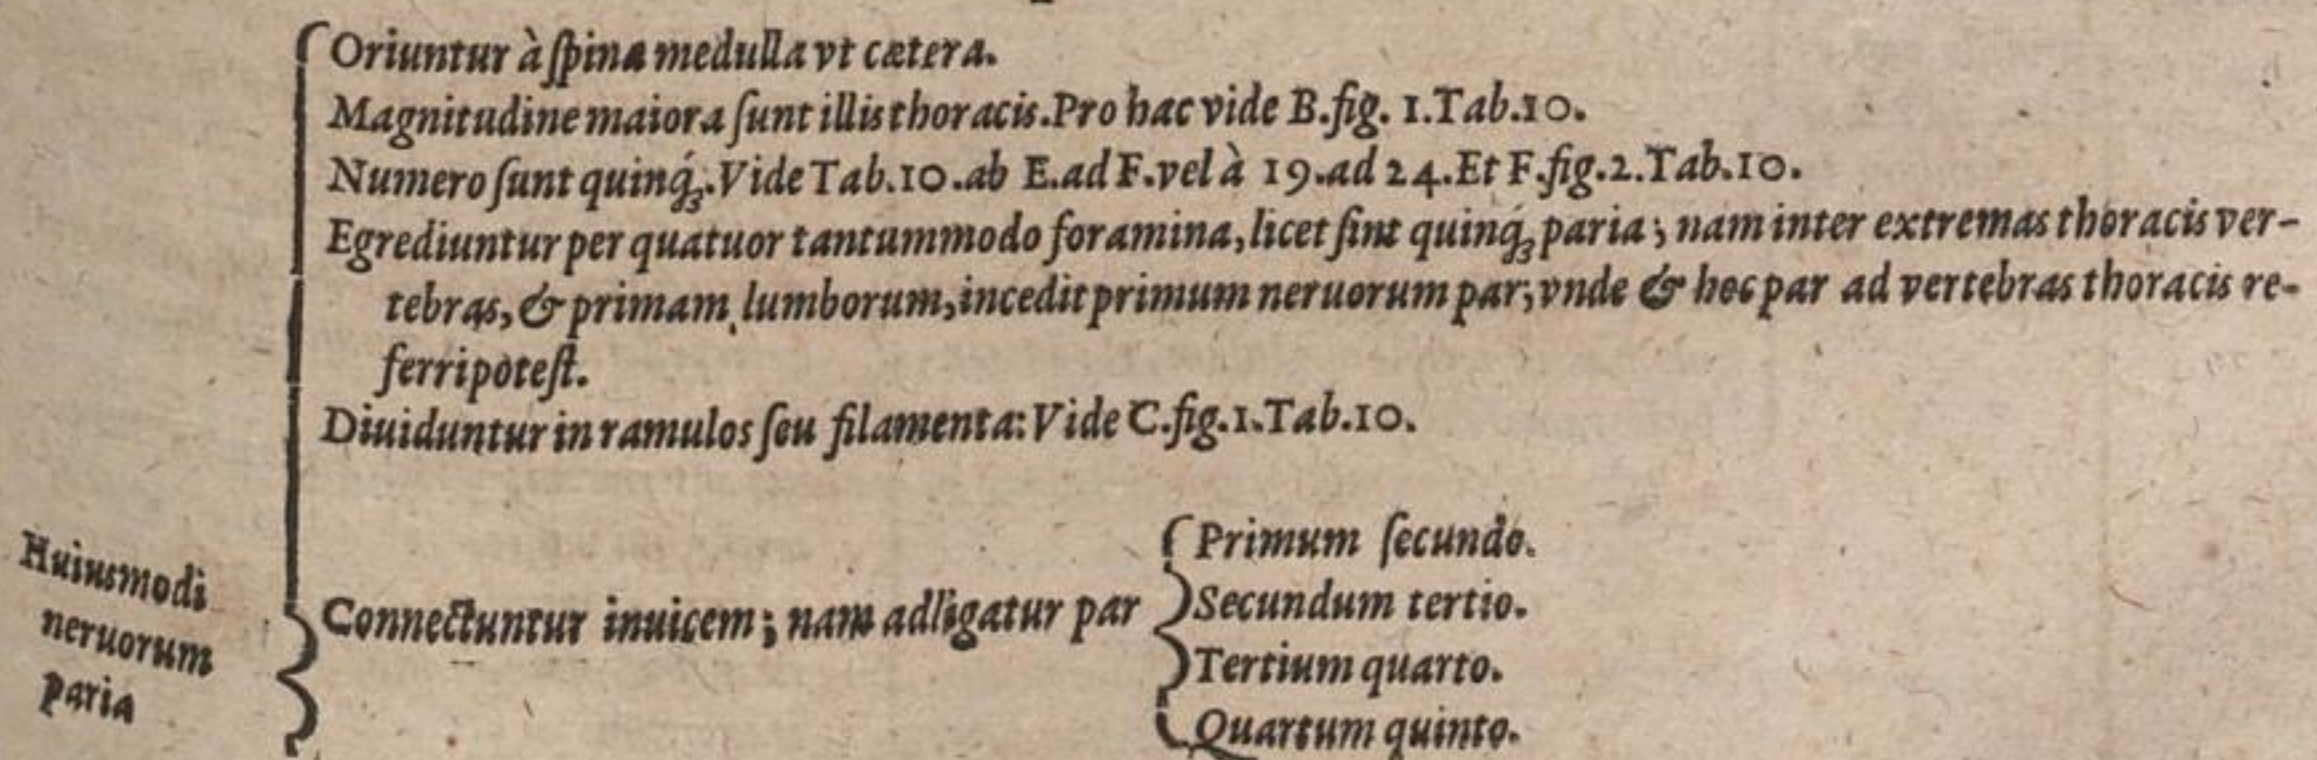 Oriuntur à ſpina medulla vt cætera.
Magnitudine maiora ſunt illis thoracis. Pro hac vide B. fig. 1. Tab. 10.
Numero ſunt quinq́ꝫ. Vide Tab. 10. ab E. ad F. vel à 19. ad 24. Et F. fig. 2. Tab. 10.
Egrediuntur per quatuor tantummodo foramina, licet ſint quinq́ꝫ paria; nam inter extremas thoracis ver-
tebras, & primam lumborum, incedit primum neruorum par; vnde & hoc par ad vertebras thoracis re-
ferri poteſt.
Diuiduntur in ramulos ſeu filamenta: Vide C. fig. 1. Tab. 10.
Huiusmodi
neruorum
paria
Connectuntur inuicem; nam adligatur par
Primum ſecundo.
Secundum tertio.
Tertium quarto.
Quartum quinto.